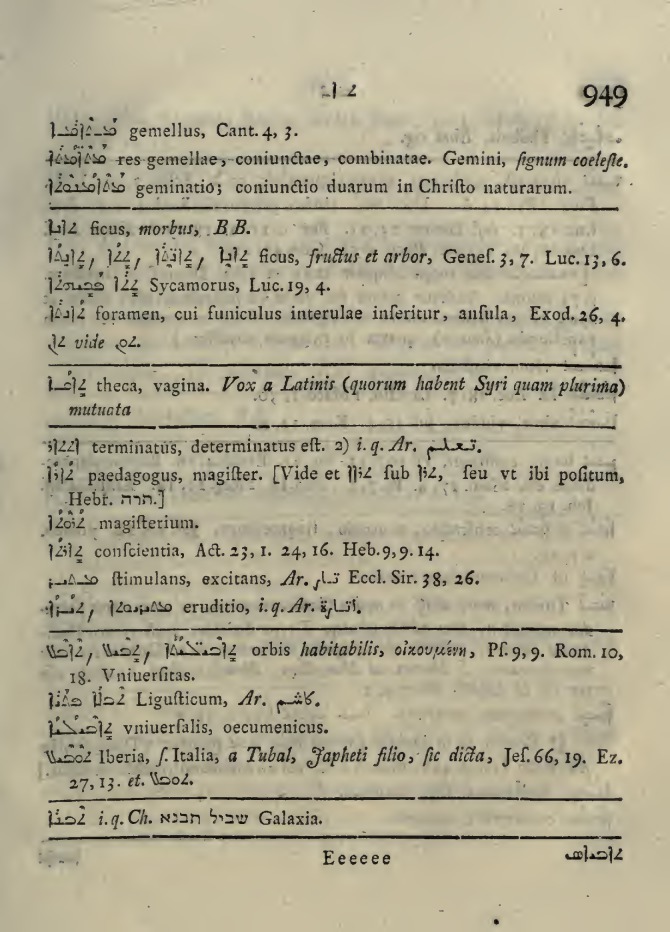 949
gemellus, Cant. 4, 3.
res gemellae, coniunctae, combinatae. Gemini, ſignum coeleſte.
geminatio; coniunctio duarum in Chriſto naturarum.
ܬܐܢܐ ficus, morbus, BB.
ܬܐܢܐ ficus, fructus et arbor, Geneſ. 3, 7. Luc. 13, 6.
Sycamorus, Luc. 19, 4.
foramen, cui funiculus interulae inſeritur, anſula, Exod. 26, 4.
vide
ܬܐܩܐ theca, vagina. Vox a Latinis (quorum habent Syri quam plurima)
mutuata
terminatus, determinatus eſt. 2) i. q. Ar. تعلم.
ܬܐܪܐ paedagogus, magiſter. [Vide et ſub ܬܪܐ, ſeu vt ibi poſitum,
Hebr. תרה.]
magiſterium.
ܬܐܪܬܐ conſcientia, Act. 23, 1. 24, 16. Heb. 9, 9. 14.
ſtimulans, excitans, Ar. تار Eccl. Sir. 38, 26.
eruditio, i. q. Ar.
ܬܐܒܝܠ, ܬܒܝܠ, orbis habitabilis, οἰκουμένη, Pſ. 9, 9. Rom. 10,
18. Vniuerſitas.
Liguſticum, Ar. كاشم.
vniuerſalis, oecumenicus.
Iberia, ſ. Italia, a Tubal, Japheti filio, ſic dicta, Jeſ. 66, 19. Ez.
27, 13. et. ܬܘܒܠ.
ܬܒܢܐ i. q. Ch. שביל תבנא Galaxia.
Eeeeee